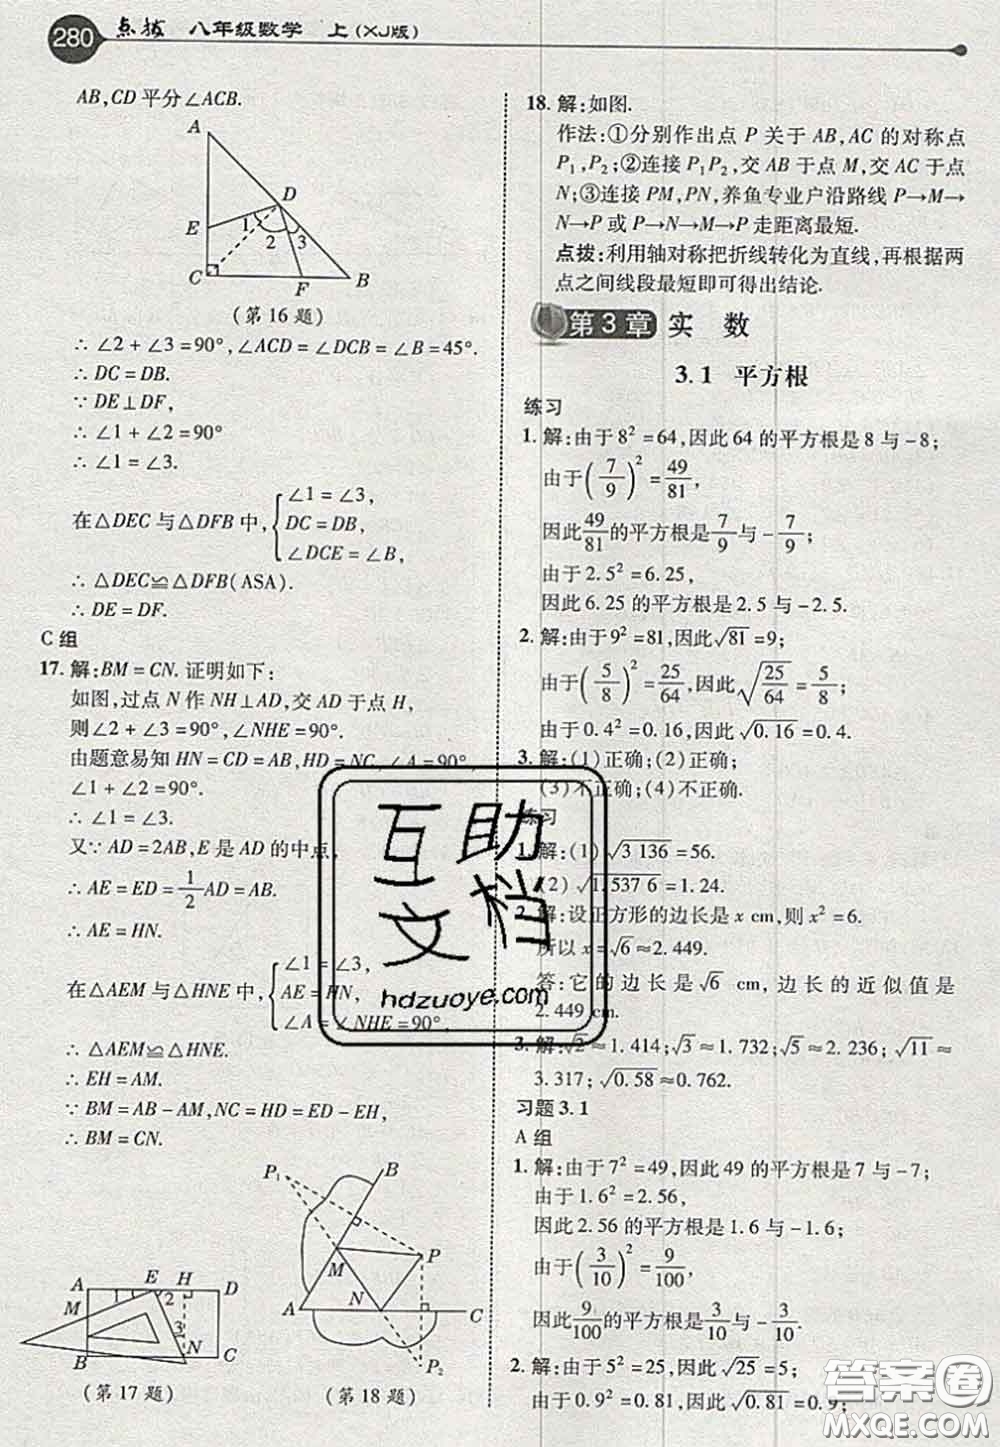 280 点拨 八年级数学 上(XJ版)
AB,CD平分∠ACB.
A
D
E
1
2
3
C
F
B
(第16题)
∴ ∠2+∠3=90°,∠ACD=∠DCB=∠B=45°.
∴ DC=DB.
∵ DE⊥DF,
∴ ∠1+∠2=90°
∴ ∠1=∠3.
在△DEC与△DFB中,{∠1=∠3,
DC=DB,
∠DCE=∠B,
∴ △DEC≌△DFB(ASA).
∴ DE=DF.
C组
17. 解:BM=CN.证明如下:
如图,过点N作NH⊥AD,交AD于点H,
则∠2+∠3=90°,∠NHE=90°.
由题意易知HN=CD=AB,HD=NC,∠A=90°,
∠1+∠2=90°.
∴ ∠1=∠3.
又∵ AD=2AB,E是AD的中点,
∴ AE=ED=1/2AD=AB.
∴ AE=HN.
在△AEM与△HNE中,{∠1=∠3,
AE=HN,
∠A=∠NHE=90°,
∴ △AEM≌△HNE.
∴ EH=AM.
∵ BM=AB-AM,NC=HD=ED-EH,
∴ BM=CN.
A
E
H
D
M
1
2
3
N
B
C
(第17题)
P₁
B
M
P
N
A
C
P₂
(第18题)
18. 解:如图.
作法:①分别作出点P关于AB,AC的对称点
P₁,P₂;②连接P₁P₂,交AB于点M,交AC于点
N;③连接PM,PN,养鱼专业户沿路线P→M→
N→P或P→N→M→P走距离最短.
点拨:利用轴对称把折线转化为直线,再根据两
点之间线段最短即可得出结论.
第3章 实 数
3.1 平方根
练习
1. 解:由于8²=64,因此64的平方根是8与-8;
由于(7/9)²=49/81,
因此49/81的平方根是7/9与-7/9;
由于2.5²=6.25,
因此6.25的平方根是2.5与-2.5.
2. 解:由于9²=81,因此√81=9;
由于(5/8)²=25/64,因此√(25/64)=5/8;
由于0.4²=0.16,因此√0.16=0.4.
3. 解:(1)正确;(2)正确;
(3)不正确;(4)不正确.
练习
1. 解:(1)√3 136=56.
(2)√1.537 6=1.24.
2. 解:设正方形的边长是x cm,则x²=6.
所以x=√6≈2.449.
答:它的边长是√6 cm,边长的近似值是
2.449 cm.
3. 解:√2≈1.414;√3≈1.732;√5≈2.236;√11≈
3.317;√0.58≈0.762.
习题3.1
A组
1. 解:由于7²=49,因此49的平方根是7与-7;
由于1.6²=2.56,
因此2.56的平方根是1.6与-1.6;
由于(3/10)²=9/100,
因此9/100的平方根是3/10与-3/10.
2. 解:由于5²=25,因此√25=5;
由于0.9²=0.81,因此√0.81=0.9;
互助
文档
hdzuoye.com
答案圈
MXQE.COM